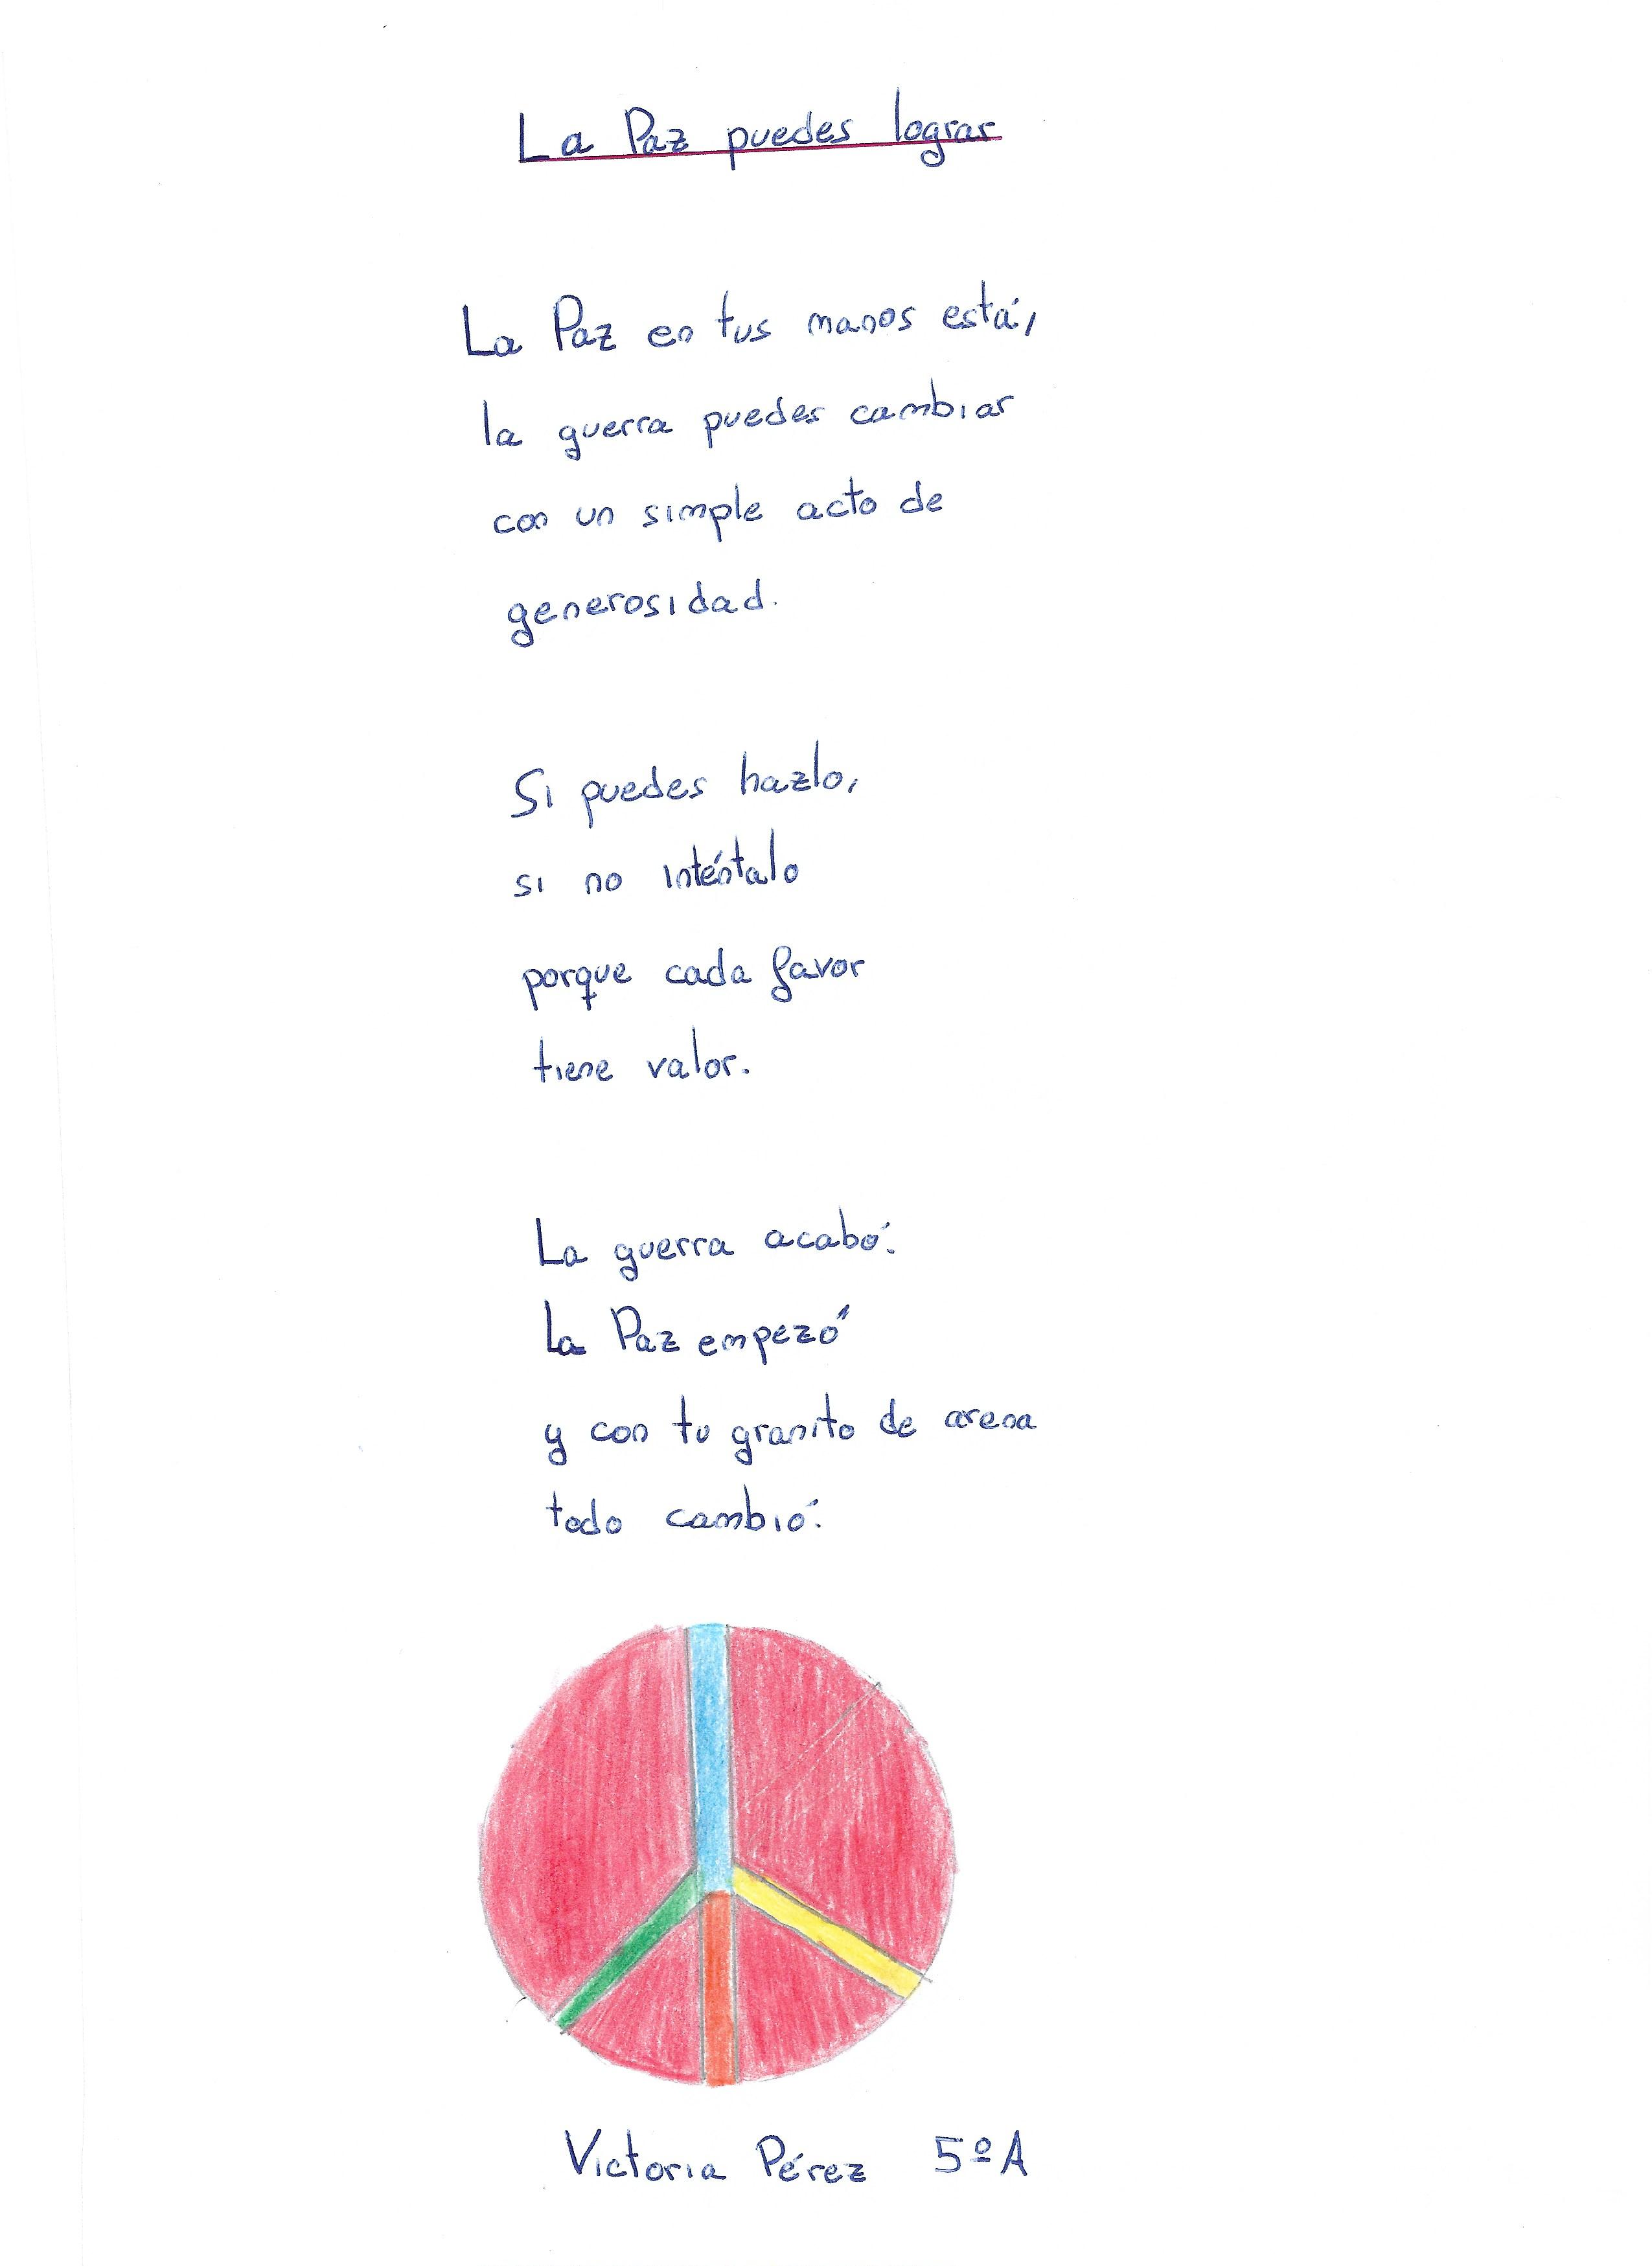 La Paz puedes lograr
La Paz en tus manos está,
la guerra puedes cambiar
con un simple acto de
generosidad.
Si puedes hazlo,
si no inténtalo
porque cada favor
tiene valor.
La guerra acabó.
la Paz empezó
y con tu granito de arena
todo cambió.
Victoria Pérez 5º A